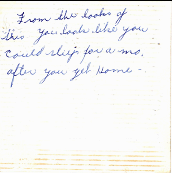 From the looks of
this you look like you
could sleep for a mo.
after you get home -